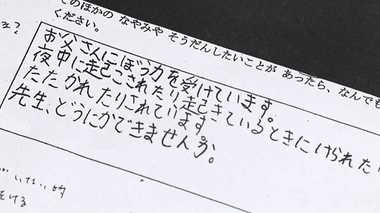 てのほかの なやみや そうだんしたいことが あったら、なんでも
ください。
お父さんにぼう力を受けています。
夜中に起こされたり起きているときにけられたり
たたかれたりされています
先生、どうにかできませんか。